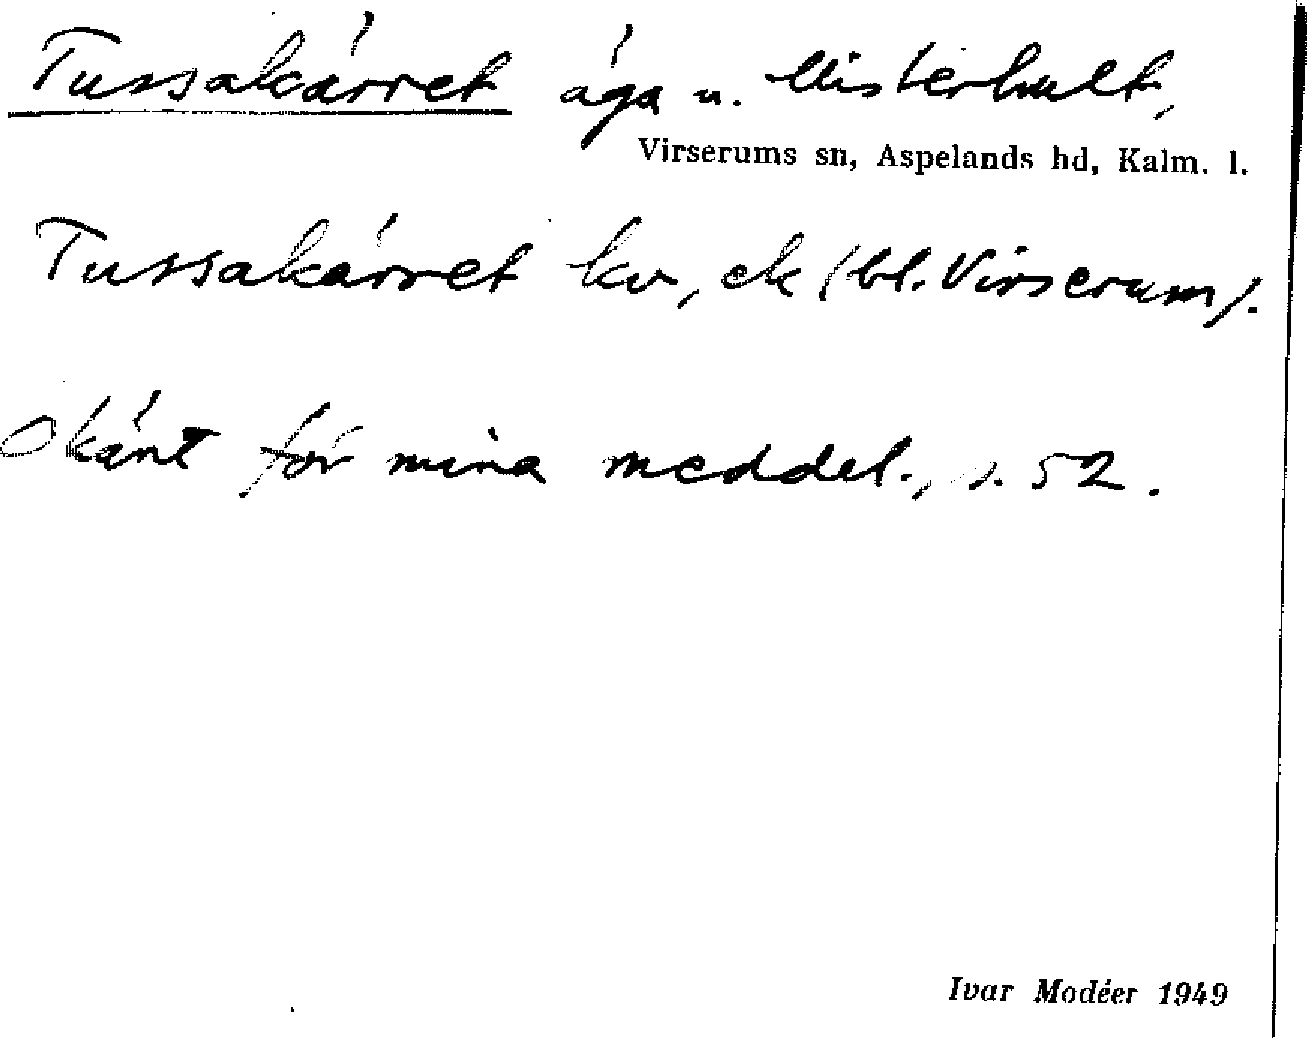 Tussakärret äga u. Misterhult,
Virserums sn, Aspelands hd, Kalm. l.
Tussakärret kv, ek (bl. Virserum).
Okänt för mina meddel., s. 52.
Ivar Modéer 1949